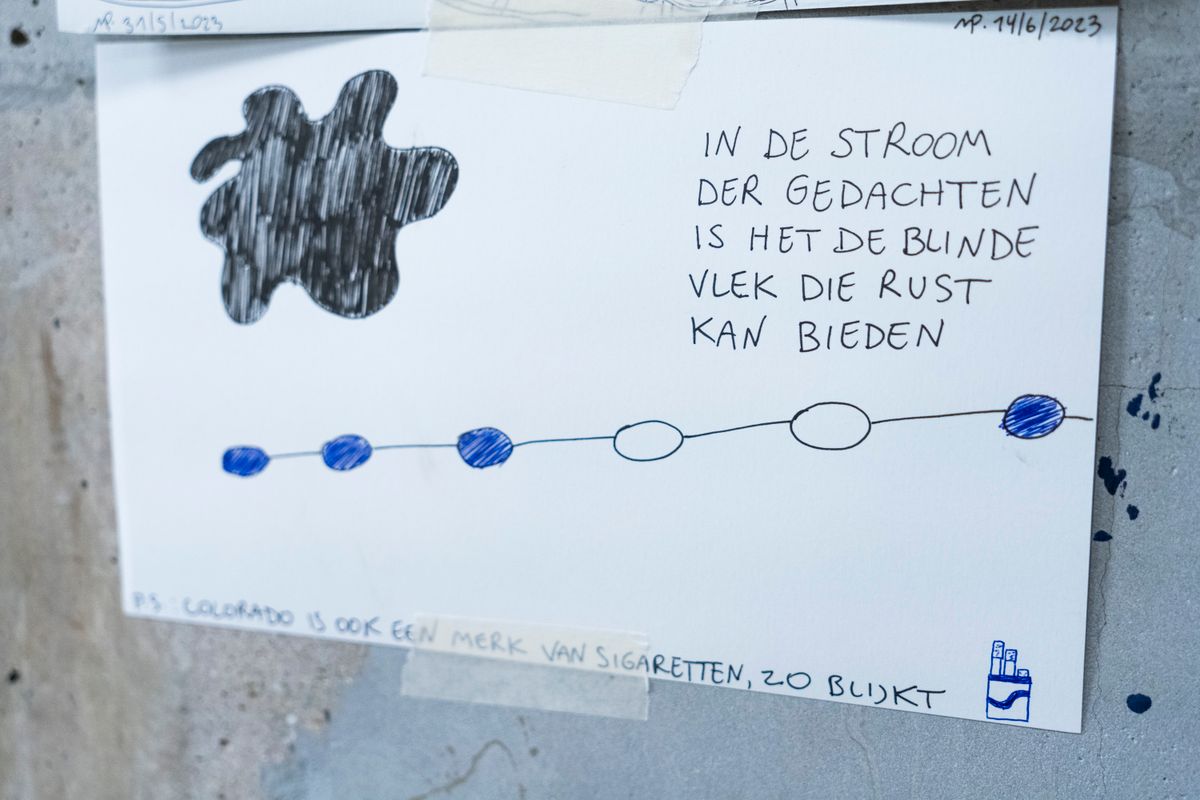 MP. 31/5/2023
MP. 14/6/2023
IN DE STROOM
DER GEDACHTEN
IS HET DE BLINDE
VLEK DIE RUST
KAN BIEDEN
P.S: COLORADO IS OOK EEN MERK VAN SIGARETTEN, ZO BLIJKT